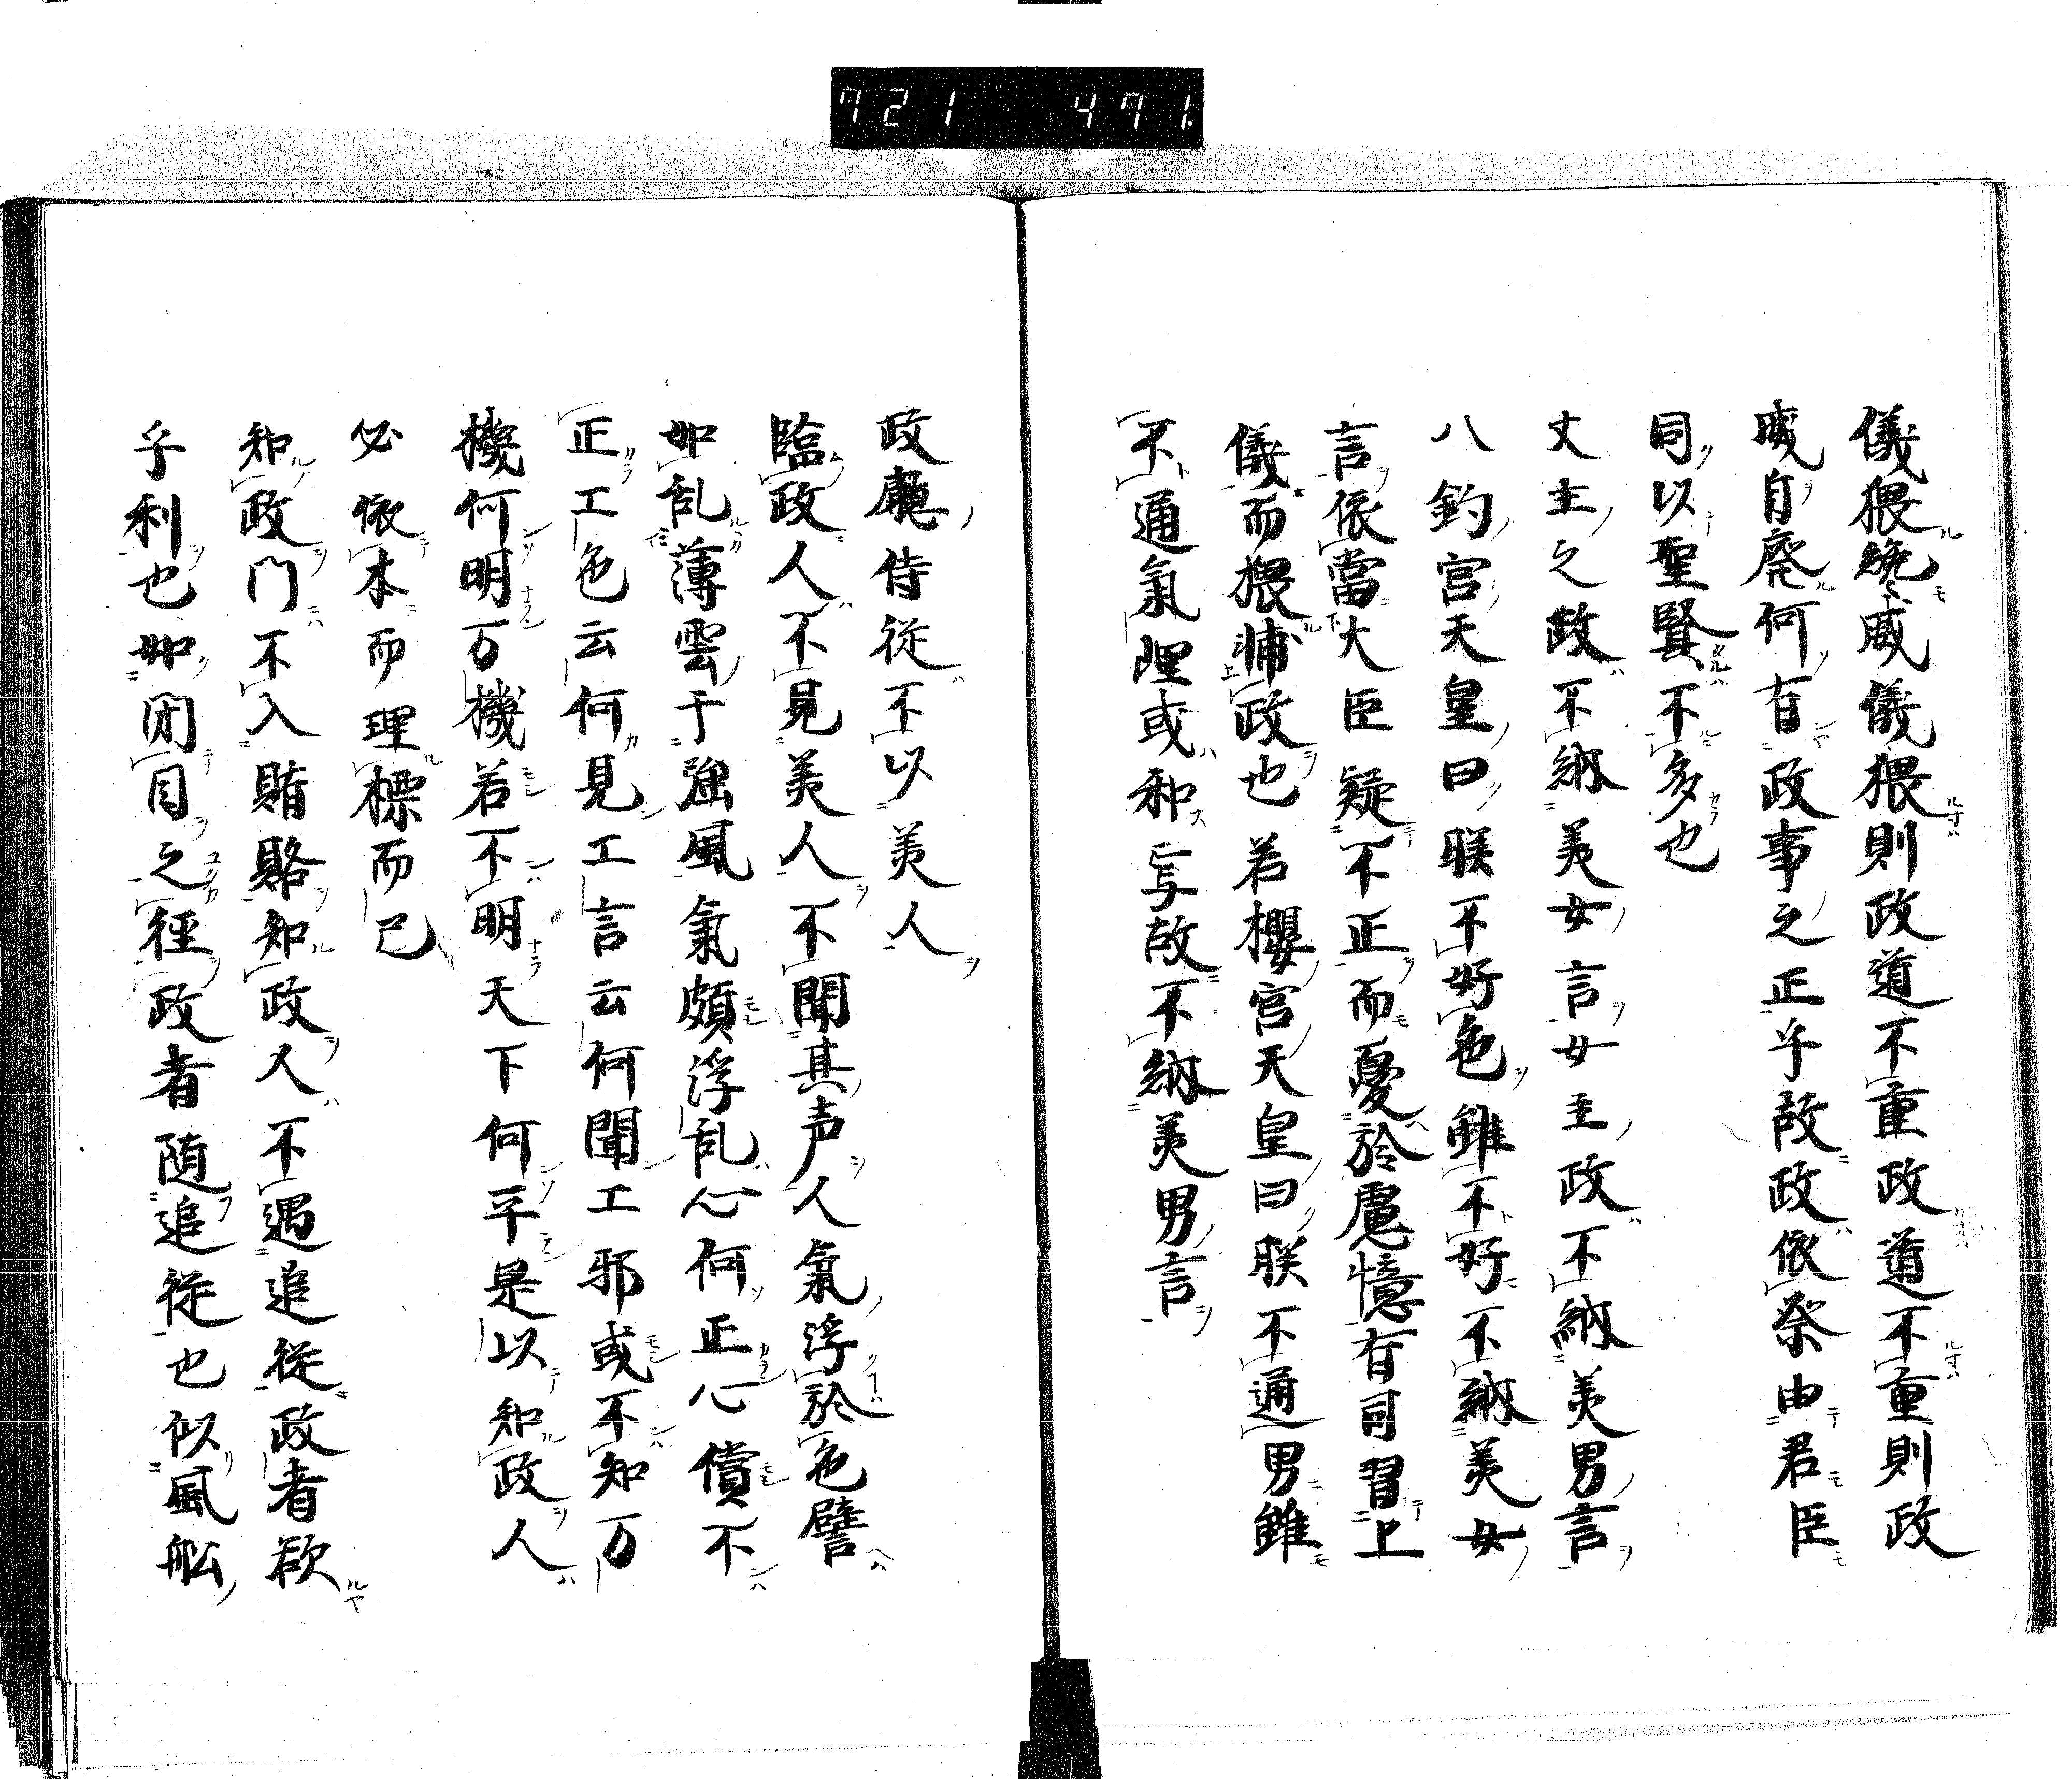 721 471.
儀猥纔威儀猥則政道不重政道不重則政
威自廃何有政事之正乎故政依祭由君臣
同以聖賢不多也
丈主之政不納美女言女主政不納美男言
八釣宮天皇曰朕不好色雖不好不納美女
言依當大臣疑不正而憂於慮憶有司習上
儀而猥補政也若櫻宮天皇曰朕不通男雖
不通氣理或和与故不納美男言
政廳侍従不以美人
臨政人不見美人不聞其声人氣浮於色譬
如乱薄雲于強風氣頗浮乱心何正心償不
正工色云何見工言云何聞工邪或不知万
機何明万機若不明天下何平是以知政人
必依本而理標而已
知政門不入賄賂知政人不遇追従政者欲
乎利也如閉目之径政者随追従也似風舩